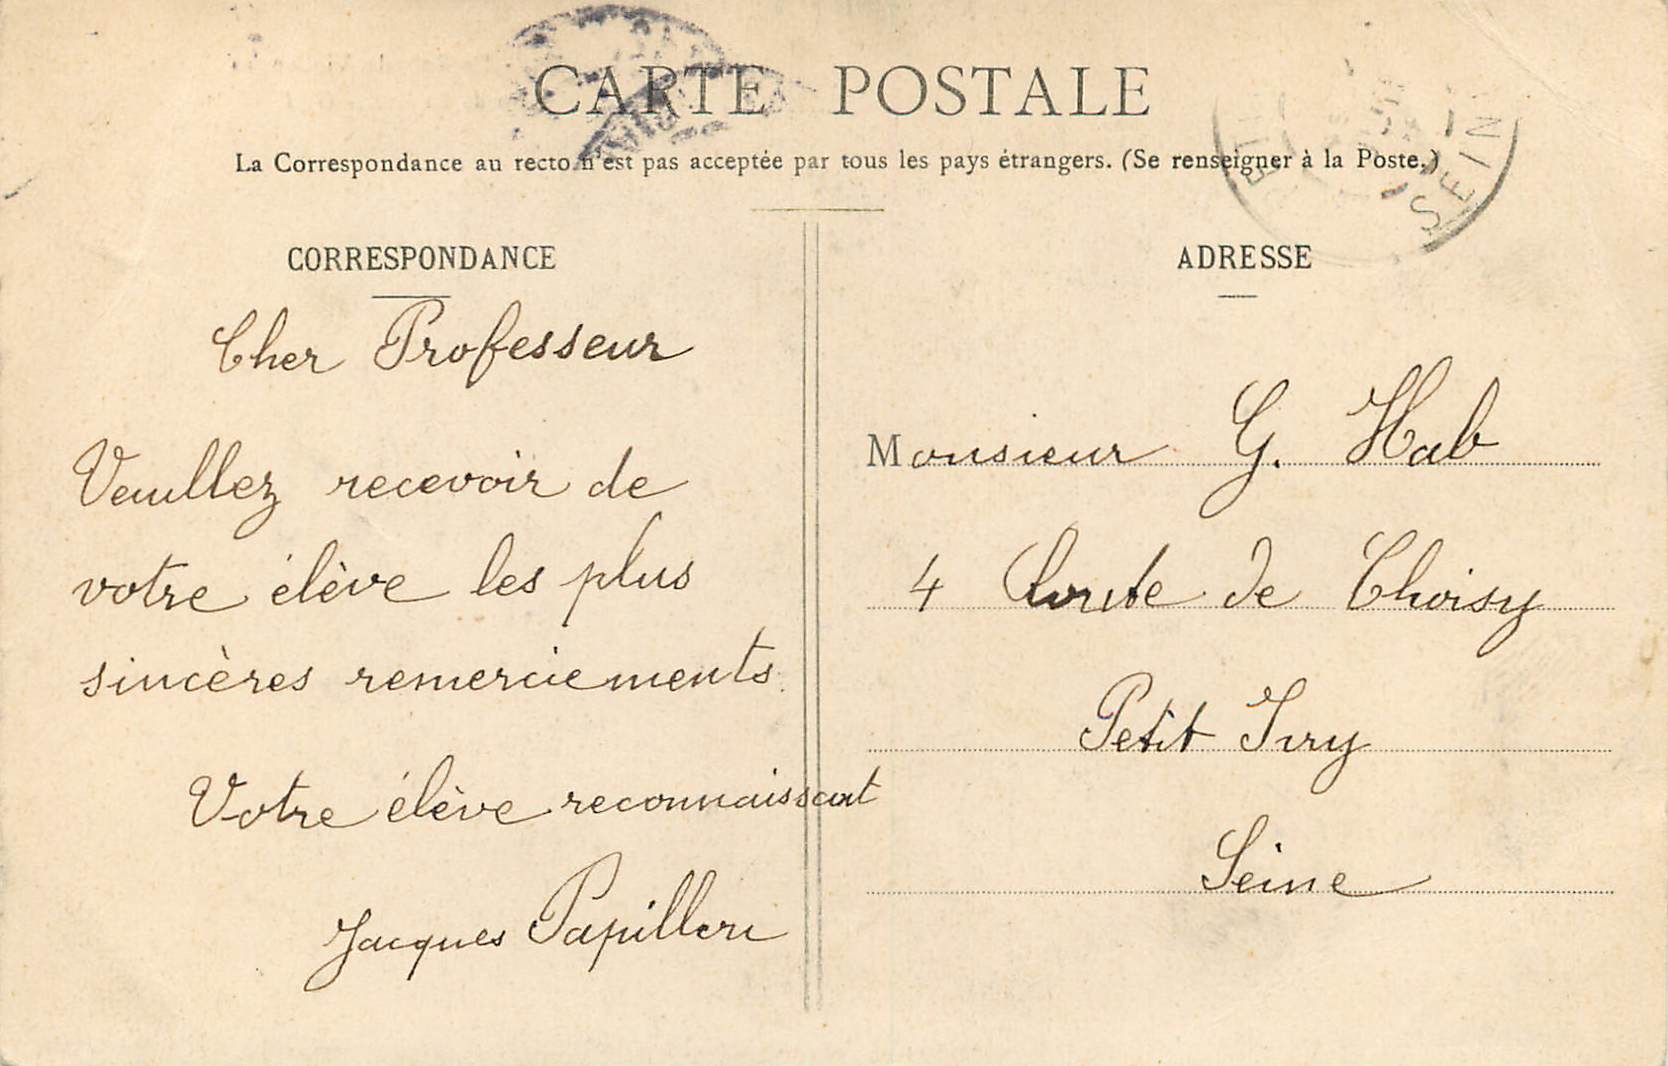 CARTE POSTALE
La Correspondance au recto n'est pas acceptée par tous les pays étrangers. (Se renseigner à la Poste.)
CORRESPONDANCE
Cher Professeur
Veuillez recevoir de
votre élève les plus
sincères remerciements.
Votre élève reconnaissant
Jacques Papillon
ADRESSE
Monsieur G. Hab
4 Route de Choisy
Petit Ivry
Seine
SEIN